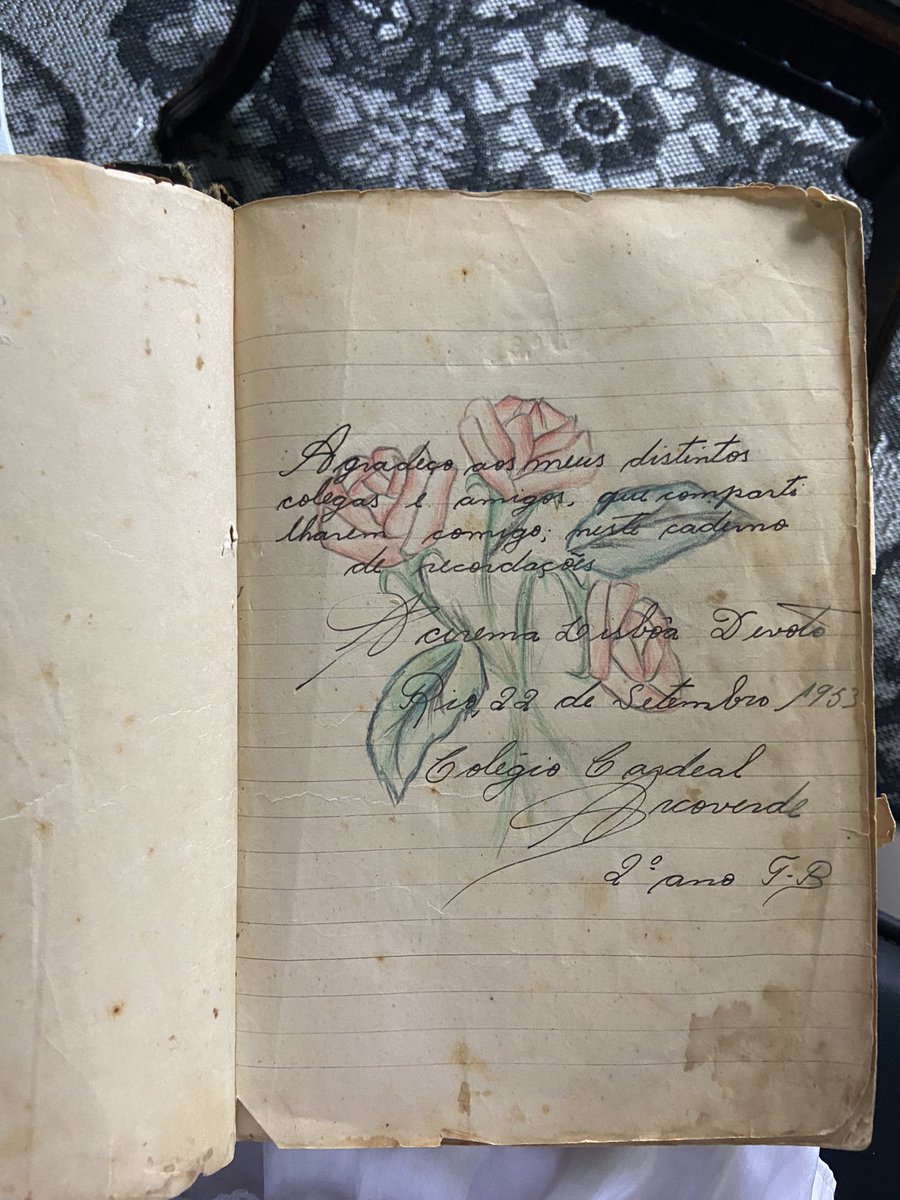 Agradeço aos meus distintos
colegas e amigos, que comparti
lharem comigo; neste caderno
de recordações
Acirema Lisbôa Devoto
Rio, 22 de Setembro 1953
Colégio Cardeal
Arcoverde
2º ano T-B